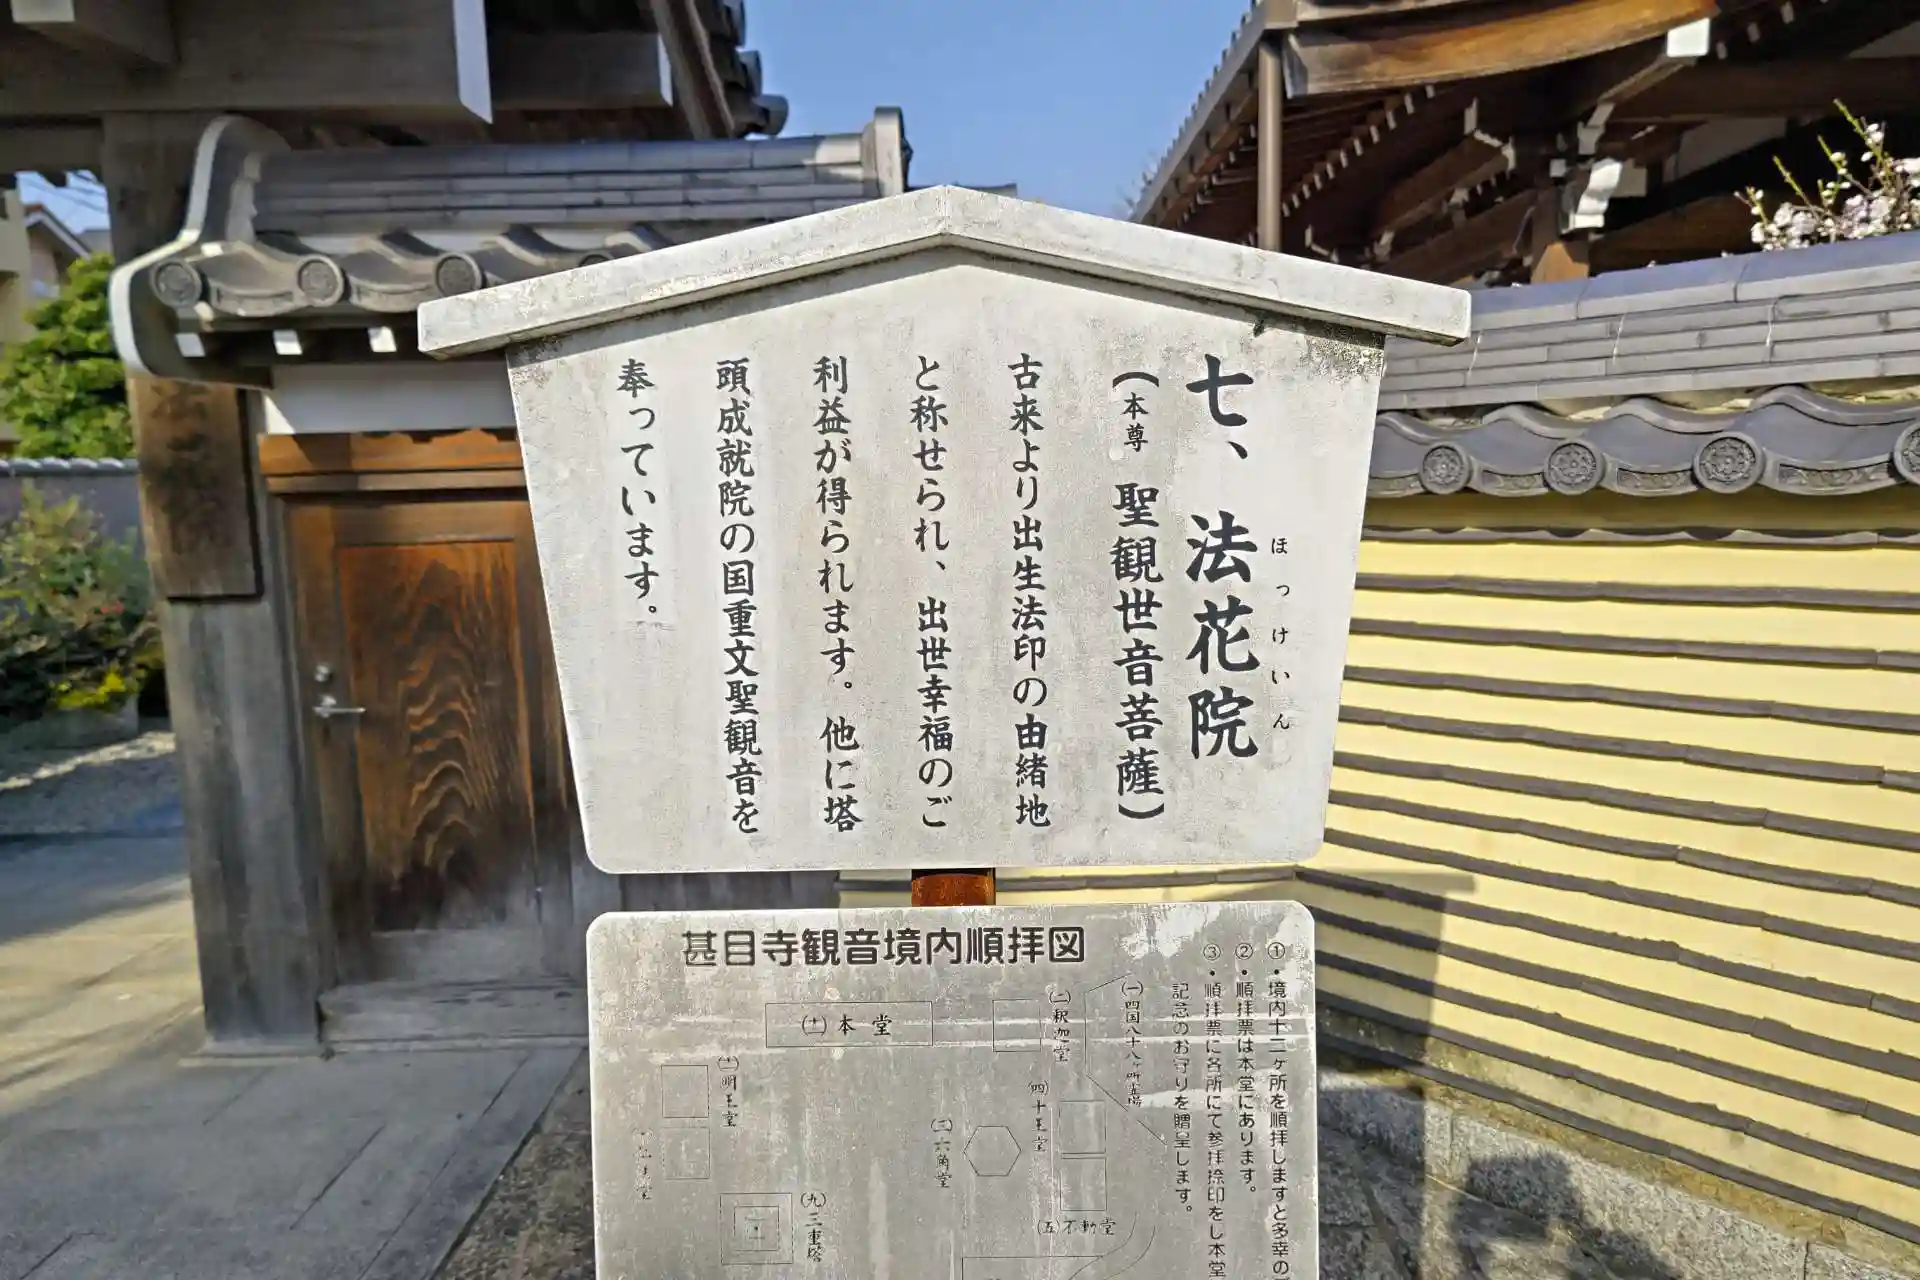 七、法花院
ほっけいん
（本尊 聖観世音菩薩）
古来より出生法印の由緒地
と称せられ、出世幸福のご
利益が得られます。他に塔
頭成就院の国重文聖観音を
奉っています。
甚目寺観音境内順拝図
①・境内十二ヶ所を順拝しますと多幸の
②・順拝票は本堂にあります。
③・順拝票に各所にて参拝捺印をし本堂
記念のお守りを贈呈します。
(一)四国八十八ヶ所霊場
(二)釈迦堂
(十二)本堂
(十)明王堂
(四)十王堂
(三)六角堂
(九)三重塔
(五)不動堂